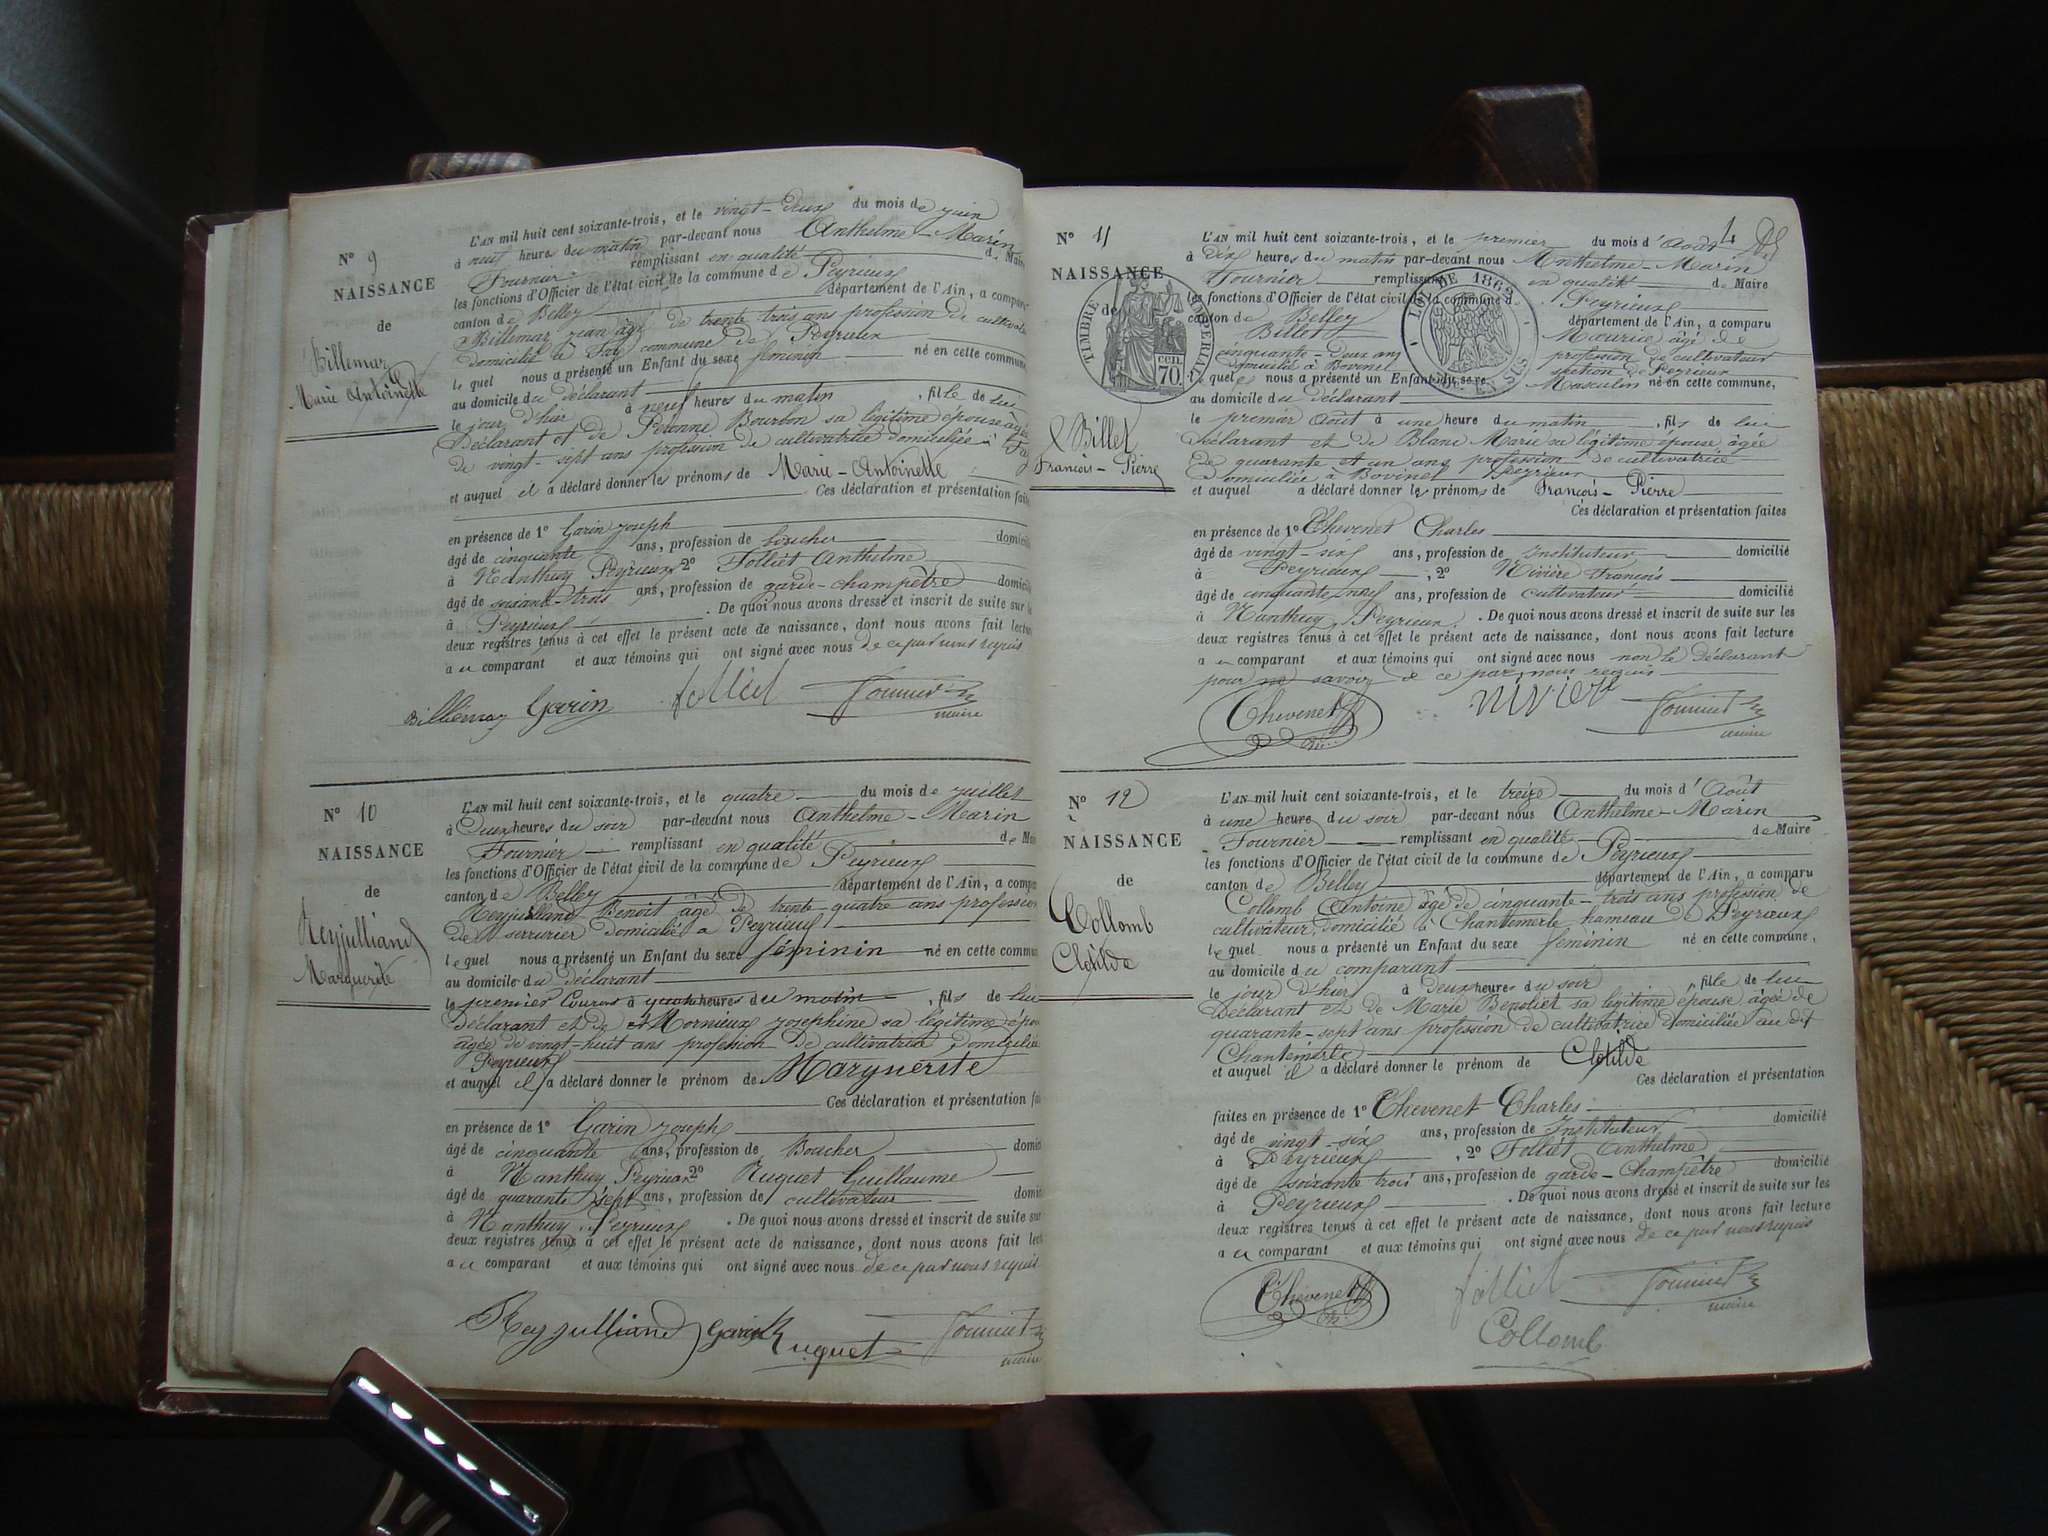 N° 9
NAISSANCE
de
Billemaz
Marie Antoinette
L'AN mil huit cent soixante-trois, et le vingt-deux du mois de juin
à neuf heures du matin par-devant nous Anthelme-Marin
Fournier remplissant en qualité de Maire
les fonctions d'Officier de l'état civil de la commune de Peyrieux
canton de Belley département de l'Ain, a compar
Billemaz jean âgé de trente trois ans profession de cultivat
domicilié à commune de Peyrieux
le quel nous a présenté un Enfant du sexe féminin né en cette commune,
au domicile du déclarant
le jour d'hier à neuf heures du matin , fille de lui
déclarant et de Bourbon sa légitime épouse âgée
de vingt-sept ans profession de cultivatrice domiciliée à
et auquel il a déclaré donner les prénoms de Marie-Antoinette
Ces déclaration et présentation faites
en présence de 1° Garin joseph
âgé de cinquante ans, profession de boucher domicilié
à Nanthuy Peyrieux 2° Folliet Anthelme
âgé de soixante-trois ans, profession de garde-champêtre domicilié
à Peyrieux . De quoi nous avons dressé et inscrit de suite sur le
deux registres tenus à cet effet le présent acte de naissance, dont nous avons fait lecture
au comparant et aux témoins qui ont signé avec nous de ce par nous requis
Billemaz Garin folliet Fournier
maire
N° 10
NAISSANCE
de
Reyjulliand
Marguerite
L'AN mil huit cent soixante-trois, et le quatre du mois de juillet
à deux heures du soir par-devant nous Anthelme-Marin
Fournier remplissant en qualité de Mai
les fonctions d'Officier de l'état civil de la commune de Peyrieux
canton de Belley département de l'Ain, a compa
Reyjulliand Benoit âgé de trente-quatre ans profession
de serrurier domicilié à Peyrieux
le quel nous a présenté un Enfant du sexe féminin né en cette commun
au domicile du déclarant
le premier Courant à quatre heures du matin , fils de lui
déclarant et de Mornieux josephine sa légitime épou
âgée de vingt-huit ans profession de cultivatrice domiciliée
Peyrieux
et auquel il a déclaré donner le prénom de Marguerite
Ces déclaration et présentation fai
en présence de 1° Garin joseph
âgé de cinquante ans, profession de Boucher domici
à Nanthuy Peyrieux 2° Ruguet Guillaume
âgé de quarante sept ans, profession de cultivateur domici
à Nanthuy Peyrieux . De quoi nous avons dressé et inscrit de suite sur
deux registres tenus à cet effet le présent acte de naissance, dont nous avons fait lect
au comparant et aux témoins qui ont signé avec nous de ce par nous requis
Reyjulliand Garin Ruguet Fournier
maire
4
N° 11
NAISSANCE
de
Billet
François-Pierre
TIMBRE IMPERIAL
CEN. 70
LOI DE 1862
L'AN mil huit cent soixante-trois, et le premier du mois d'Août
à dix heures du matin par-devant nous Anthelme-Marin
Fournier remplissant en qualité de Maire
les fonctions d'Officier de l'état civil de la commune Peyrieux
canton de Belley département de l'Ain, a comparu
Billet Maurice âgé de
cinquante-deux ans profession de cultivateur
domicilié à Bovinel section de Peyrieux
le quel nous a présenté un Enfant du sexe Masculin né en cette commune,
au domicile du déclarant
le premier Août à une heure du matin , fils de lui
déclarant et de Blanc Marie sa légitime épouse âgée
de quarante et un ans profession de cultivatrice
domiciliée à Bovinel Peyrieux
et auquel a déclaré donner le prénoms de François-Pierre
Ces déclaration et présentation faites
en présence de 1° Chevenet Charles
âgé de vingt-six ans, profession de Instituteur domicilié
à Peyrieux , 2° Nivière François
âgé de cinquante neuf ans, profession de Cultivateur domicilié
à Nanthuy Peyrieux . De quoi nous avons dressé et inscrit de suite sur les
deux registres tenus à cet effet le présent acte de naissance, dont nous avons fait lecture
au comparant et aux témoins qui ont signé avec nous non le déclarant
pour ne savoir de ce par nous requis
Chevenet Ch. nivier Fournier
maire
N° 12
NAISSANCE
de
Collomb
Clotilde
L'AN mil huit cent soixante-trois, et le treize du mois d'Août
à une heure du soir par-devant nous Anthelme-Marin
Fournier remplissant en qualité de Maire
les fonctions d'Officier de l'état civil de la commune de Peyrieux
canton de Belley département de l'Ain, a comparu
Collomb Antoine âgé de cinquante-trois ans profession de
cultivateur domicilié à Chantemerle hameau de Peyrieux
le quel nous a présenté un Enfant du sexe féminin né en cette commune,
au domicile du comparant
le jour d'hier à deux heures du soir , fille de lui
déclarant et de Marie Benoliet sa légitime épouse âgée de
quarante-sept ans profession de cultivatrice domiciliée au dit
Chantemerle
et auquel il a déclaré donner le prénom de Clotilde
Ces déclaration et présentation
faites en présence de 1° Chevenet Charles domicilié
âgé de vingt-six ans, profession de Instituteur
à Peyrieux , 2° Folliet Anthelme
âgé de soixante trois ans, profession de garde-Champêtre domicilié
à Peyrieux . De quoi nous avons dressé et inscrit de suite sur les
deux registres tenus à cet effet le présent acte de naissance, dont nous avons fait lecture
au comparant et aux témoins qui ont signé avec nous de ce par nous requis
Chevenet Ch. folliet Fournier
maire
Collomb